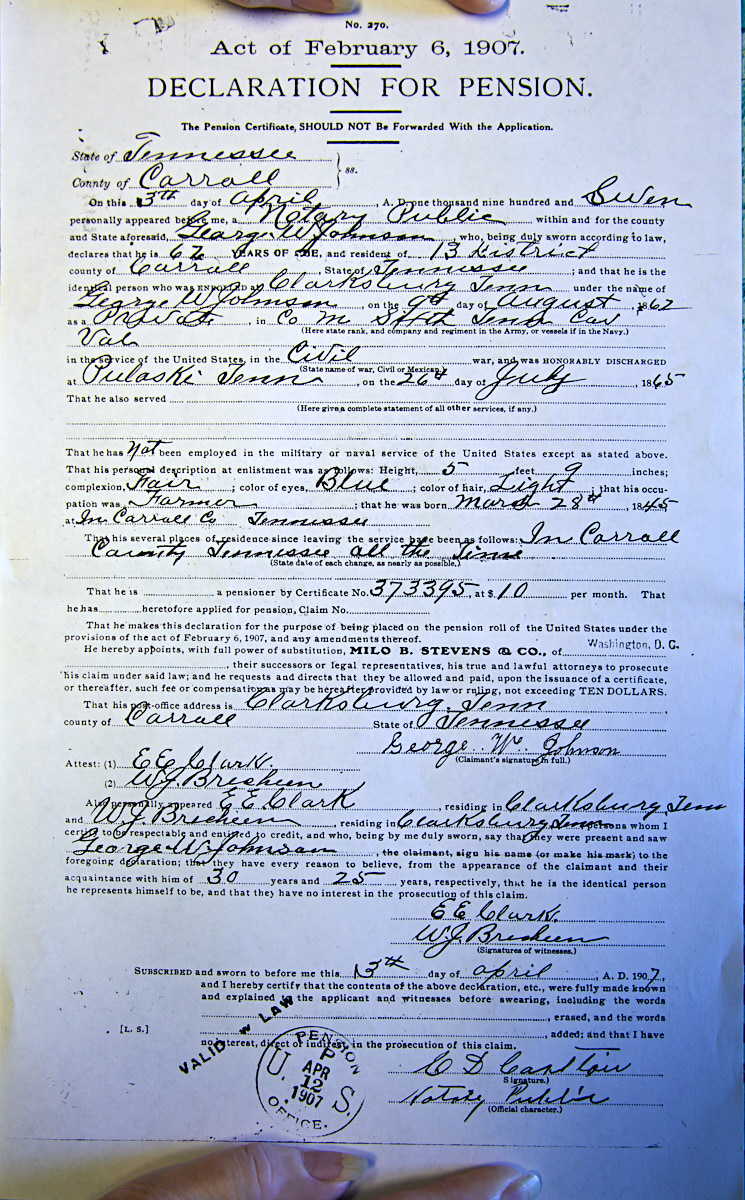 No. 270.
Act of February 6, 1907.
DECLARATION FOR PENSION.
The Pension Certificate, SHOULD NOT Be Forwarded With the Application.
State of Tennessee
County of Carroll } ss.
On this 3th day of April, A. D. one thousand nine hundred and Seven
personally appeared before me, a Notary Public within and for the county
and State aforesaid, George W Johnson who, being duly sworn according to law,
declares that he is 62 YEARS OF AGE, and resident of 13 District
county of Carroll, State of Tennessee; and that he is the
identical person who was ENROLLED at Clarksburg Tenn under the name of
George W Johnson, on the 9th day of August, 1862
as a Private, in Co M Tenn Cav
(Here state rank, and company and regiment in the Army, or vessels if in the Navy.)
Vol
in the service of the United States, in the Civil war, and was HONORABLY DISCHARGED
(State name of war, Civil or Mexican.)
at Pulaski Tenn, on the 26th day of July, 1865
That he also served
(Here give a complete statement of all other services, if any.)
That he has Not been employed in the military or naval service of the United States except as stated above.
That his personal description at enlistment was as follows: Height, 5 feet 9 inches;
complexion, Fair; color of eyes, Blue; color of hair, Light; that his occu-
pation was Farmer; that he was born March 28th, 1845
at In Carroll Co Tennessee
That his several places of residence since leaving the service have been as follows: In Carroll
County Tennessee all the Time
(State date of each change, as nearly as possible.)
That he is a pensioner by Certificate No. 373395, at $ 10 per month. That
he has heretofore applied for pension, Claim No.
That he makes this declaration for the purpose of being placed on the pension roll of the United States under the
provisions of the act of February 6, 1907, and any amendments thereof.
He hereby appoints, with full power of substitution, MILO B. STEVENS & CO., of Washington, D. C.
, their successors or legal representatives, his true and lawful attorneys to prosecute
his claim under said law; and he requests and directs that they be allowed and paid, upon the issuance of a certificate,
or thereafter, such fee or compensation as may be hereafter provided by law or ruling, not exceeding TEN DOLLARS.
That his post-office address is Clarksburg Tenn,
county of Carroll State of Tennessee
George W. Johnson
(Claimant's signature in full.)
Attest: (1) E E Clark.
(2) W J Bresheen
Also personally appeared E E Clark, residing in Clarksburg Tenn
and W. J. Bresheen, residing in Clarksburg Tenn persons whom I
certify to be respectable and entitled to credit, and who, being by me duly sworn, say that they were present and saw
George W Johnson, the claimant, sign his name (or make his mark) to the
foregoing declaration; that they have every reason to believe, from the appearance of the claimant and their
acquaintance with him of 30 years and 25 years, respectively, that he is the identical person
he represents himself to be, and that they have no interest in the prosecution of this claim.
E E Clark.
W. J. Bresheen
(Signatures of witnesses.)
SUBSCRIBED and sworn to before me this 3th day of April, A. D. 1907,
and I hereby certify that the contents of the above declaration, etc., were fully made known
and explained to the applicant and witnesses before swearing, including the words
, erased, and the words
[L. S.] , added; and that I have
no interest, direct or indirect, in the prosecution of this claim.
C D
(Signature.)
Notary Public
(Official character.)
VALID LAW
U. S. PENSION OFFICE.
P
APR
12
1907